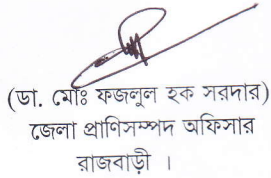 (ডা. মোঃ ফজলুল হক সরদার)
জেলা প্রাণিসম্পদ অফিসার
রাজবাড়ী ।